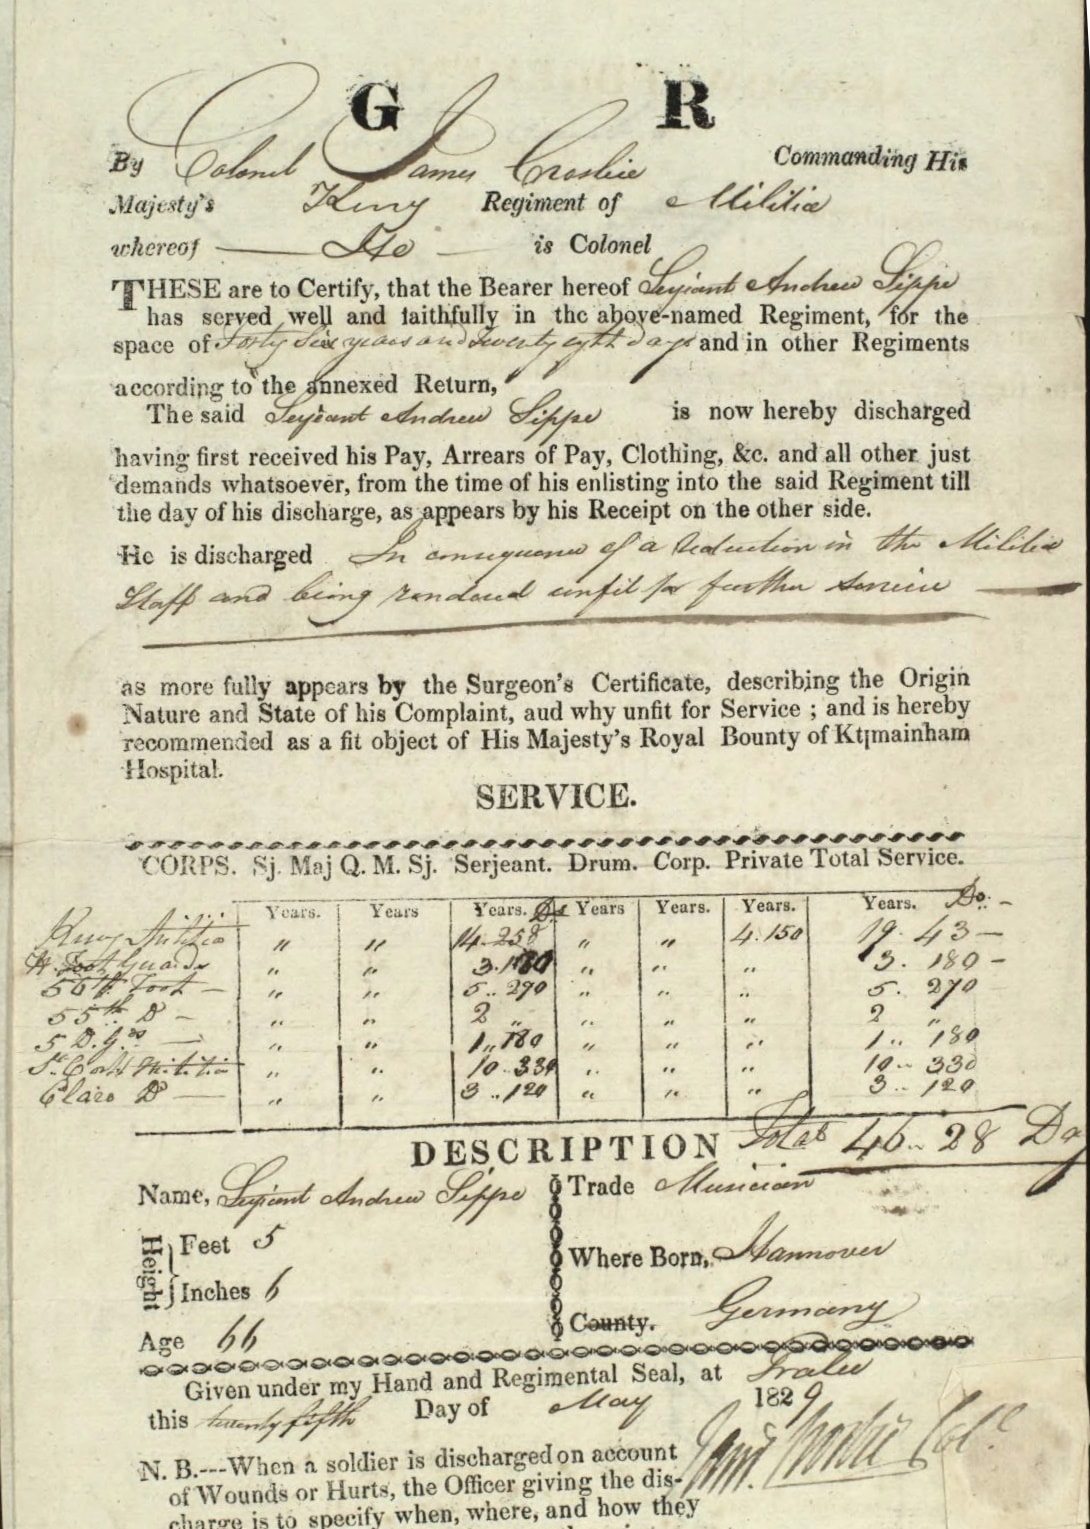 G R
By Colonel James Crosbie Commanding His
Majesty's Kerry Regiment of Militia
whereof — He — is Colonel
THESE are to Certify, that the Bearer hereof Serjeant Andrew Sippe
has served well and faithfully in the above-named Regiment, for the
space of Forty Six years and Twenty eight days and in other Regiments
according to the annexed Return,
The said Serjeant Andrew Sippe is now hereby discharged
having first received his Pay, Arrears of Pay, Clothing, &c. and all other just
demands whatsoever, from the time of his enlisting into the said Regiment till
the day of his discharge, as appears by his Receipt on the other side.
He is discharged In consequence of a Reduction in the Militia
Staff and being rendered unfit for further service —
as more fully appears by the Surgeon's Certificate, describing the Origin
Nature and State of his Complaint, aud why unfit for Service ; and is hereby
recommended as a fit object of His Majesty's Royal Bounty of Ktlmainham
Hospital.
SERVICE.
CORPS. Sj. Maj Q. M. Sj. Serjeant. Drum. Corp. Private Total Service.
Years. Years Years. Ds Years Years. Years. Years. Do. —
Kerry Militia " " 14..258 " " 4.150 19. 43 —
Foot Guards " " 3.180 " " " 3. 180 —
56th Foot — " " 5..290 " " " 5. 270
55th Do — " " 2 " " " " 2 "
5 D. Gds — " " 1..180 " " " 1.. 180
Sh. Cork Militia " " 10..330 " " " 10.. 330
Clare Do — " " 3..120 " " " 3.. 120
DESCRIPTION Total 46.. 28 Da
Name, Serjeant Andrew Sippe Trade Musician
Height Feet 5
Where Born, Hannover
Inches 6
County. Germany
Age 66
Given under my Hand and Regimental Seal, at Tralee
this twenty fifth Day of May 1829
Jams. Crosbie Colo.
N. B.---When a soldier is discharged on account
of Wounds or Hurts, the Officer giving the dis-
charge is to specify when, where, and how they